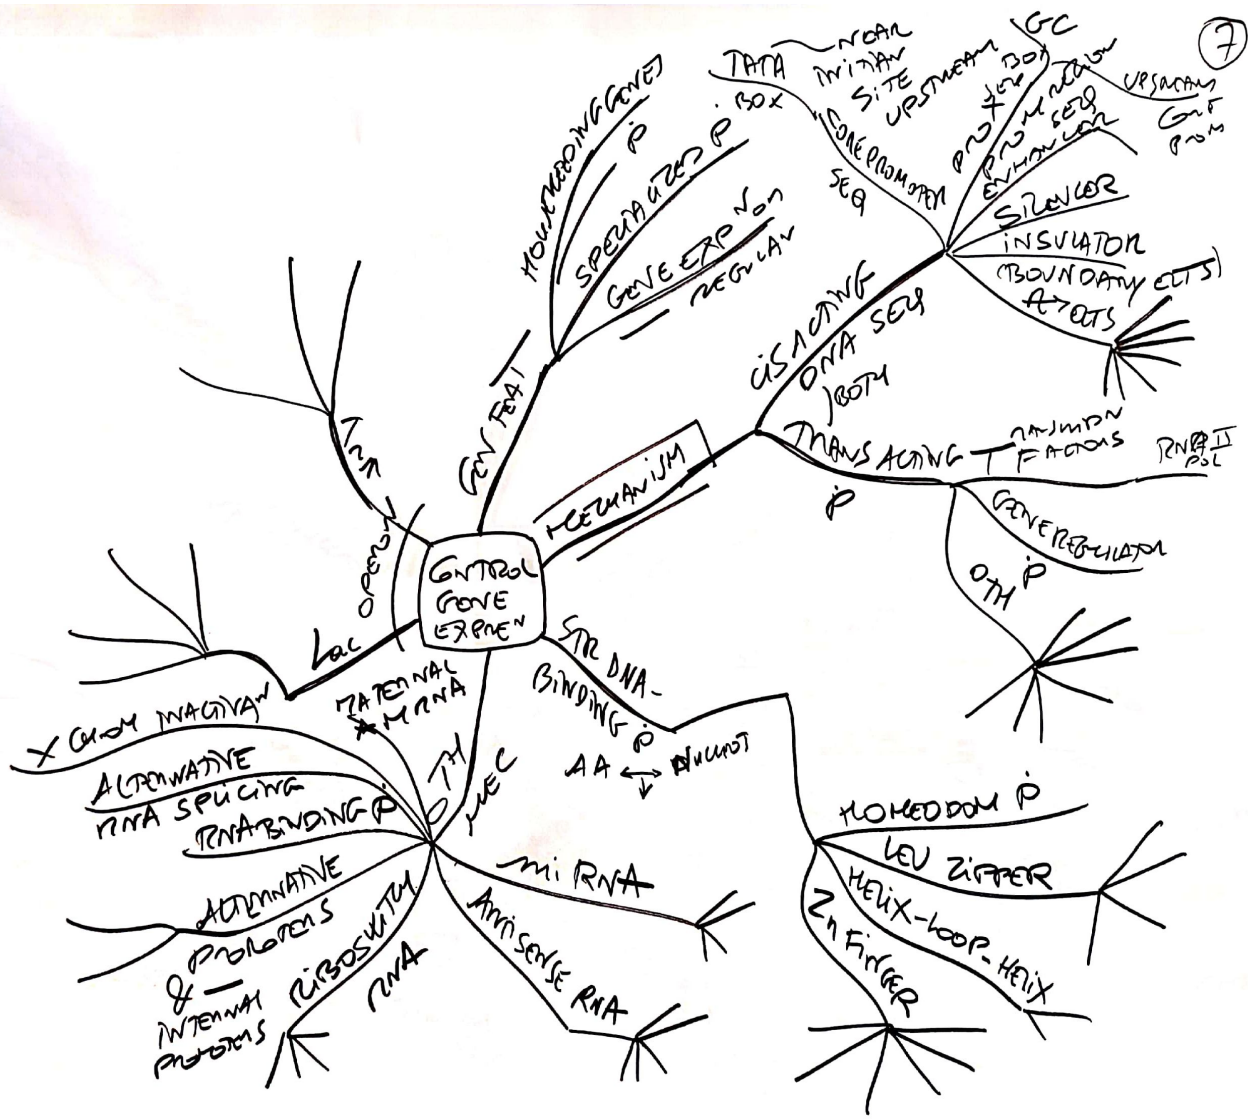 7
CONTROL
GENE
EXPREN
GEN FEAT
HOUSEKEEPING GENES
P
SPECIALIZED P
GENE EXP NON
REGULAN
MECHANISM
CIS ACTING
DNA SEQ
BOTH
CORE PROMOTER
SEQ
TATA
BOX
NEAR
INITIAN
SITE
UPSTREAM
GC
BOX
PROX
PROM REGION
PROM SEQ
UPSTREAM
PROM
ENHANCER
SILENCER
INSULATOR
(BOUNDARY ELTS)
ELTS
TRANS ACTING
P
FACTORS
RNA II
POL
GENE REGULATOR
P
OTH
STR DNA-
BINDING P
AA ↔ NUCLEOT
HOMEODOM P
LEU ZIPPER
HELIX-LOOP-HELIX
Zn FINGER
OTH
MEC
miRNA
ANTISENSE RNA
RIBOSWITCH
RNA
ALTERNATIVE
PROMOTERS
&
INTERNAL
PROMOTERS
RNA BINDING P
ALTERNATIVE
RNA SPLICING
X CHROM INACTIVAN
MATERNAL
MRNA
OPERON
Lac
TRP